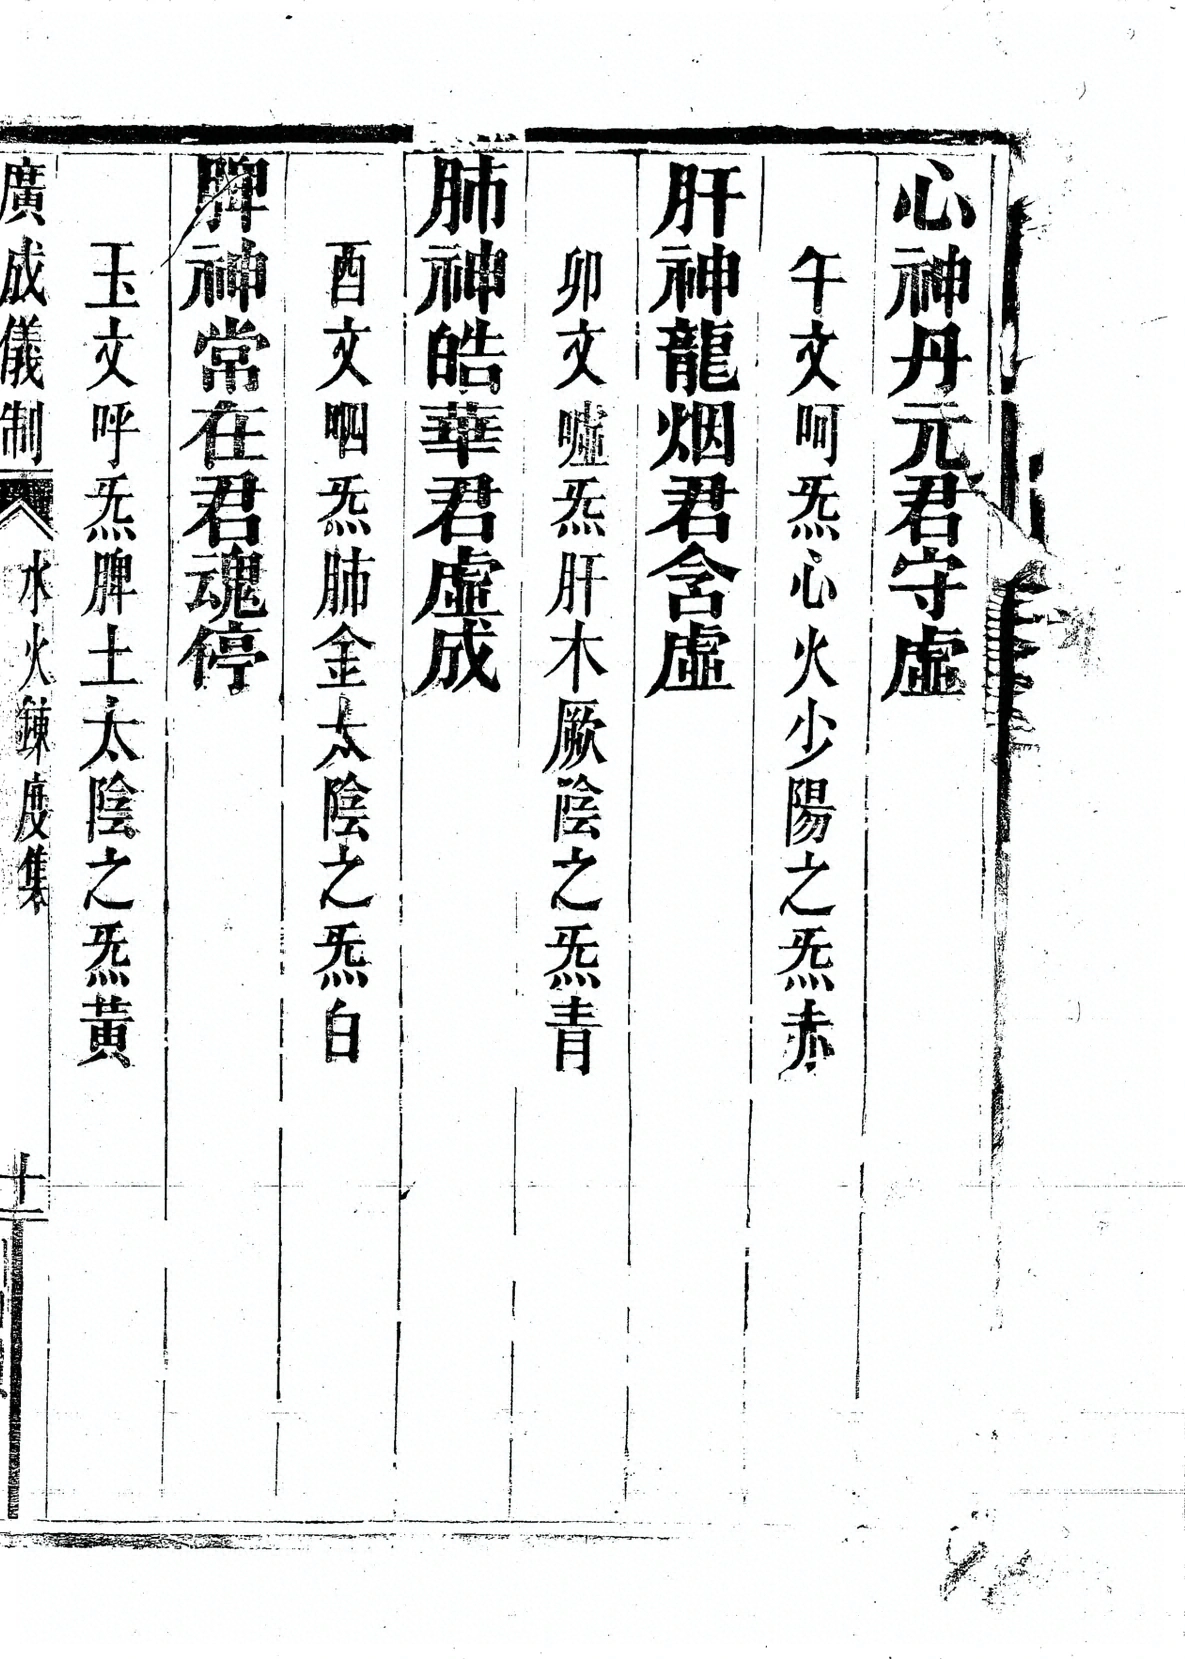 心神丹元君守虛
午文呵炁心火少陽之炁赤
肝神龍烟君含虛
卯文噓炁肝木厥陰之炁青
肺神皓華君虛成
酉文呬炁肺金太陰之炁白
脾神常在君魂停
玉文呼炁脾土太陰之炁黃
廣成儀制 水火鍊度集 十